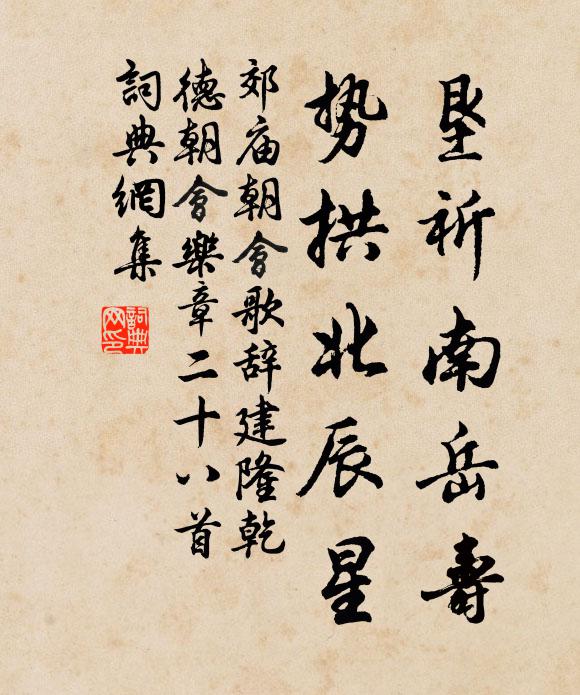 垦祈南岳壽
势拱北辰星
郊庙朝會歌辞建隆乾
德朝會樂章二十八首
詞典網集
詞典网印